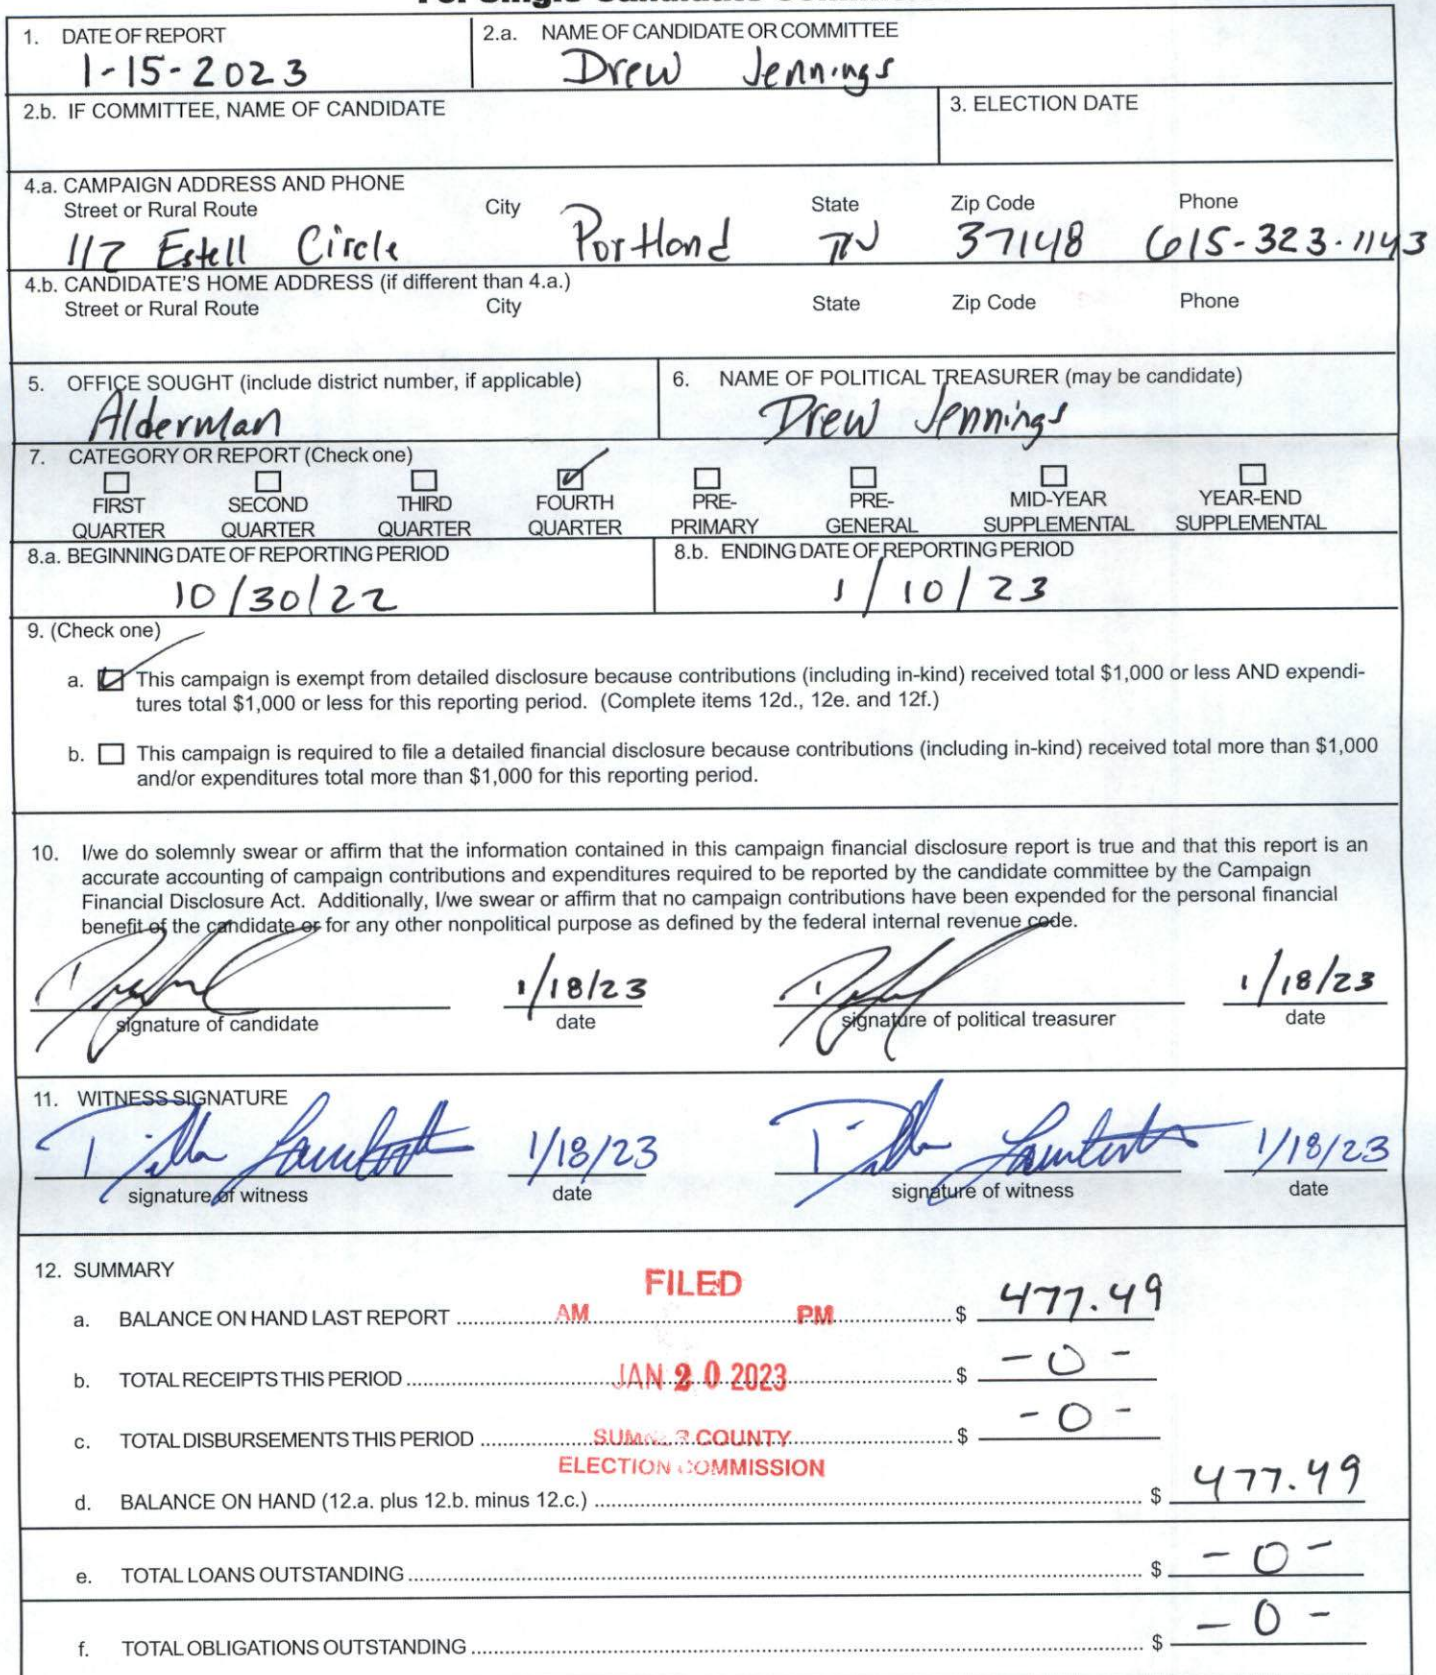 1. DATE OF REPORT
1-15-2023
2.a. NAME OF CANDIDATE OR COMMITTEE
Drew Jennings
2.b. IF COMMITTEE, NAME OF CANDIDATE
3. ELECTION DATE
4.a. CAMPAIGN ADDRESS AND PHONE
Street or Rural Route City State Zip Code Phone
117 Estell Circle Portland TN 37148 615-323-1143
4.b. CANDIDATE'S HOME ADDRESS (if different than 4.a.)
Street or Rural Route City State Zip Code Phone
5. OFFICE SOUGHT (include district number, if applicable)
Alderman
6. NAME OF POLITICAL TREASURER (may be candidate)
Drew Jennings
7. CATEGORY OR REPORT (Check one)
FIRST QUARTER
SECOND QUARTER
THIRD QUARTER
FOURTH QUARTER
PRE-PRIMARY
PRE-GENERAL
MID-YEAR SUPPLEMENTAL
YEAR-END SUPPLEMENTAL
8.a. BEGINNING DATE OF REPORTING PERIOD
10/30/22
8.b. ENDING DATE OF REPORTING PERIOD
1/10/23
9. (Check one)
a. This campaign is exempt from detailed disclosure because contributions (including in-kind) received total $1,000 or less AND expendi-
tures total $1,000 or less for this reporting period. (Complete items 12d., 12e. and 12f.)
b. This campaign is required to file a detailed financial disclosure because contributions (including in-kind) received total more than $1,000
and/or expenditures total more than $1,000 for this reporting period.
10. I/we do solemnly swear or affirm that the information contained in this campaign financial disclosure report is true and that this report is an
accurate accounting of campaign contributions and expenditures required to be reported by the candidate committee by the Campaign
Financial Disclosure Act. Additionally, I/we swear or affirm that no campaign contributions have been expended for the personal financial
benefit of the candidate or for any other nonpolitical purpose as defined by the federal internal revenue code.
1/18/23 1/18/23
signature of candidate date signature of political treasurer date
11. WITNESS SIGNATURE
1/18/23 1/18/23
signature of witness date signature of witness date
12. SUMMARY
FILED
AM PM
JAN 20 2023
SUMNER COUNTY
ELECTION COMMISSION
a. BALANCE ON HAND LAST REPORT $ 477.49
b. TOTAL RECEIPTS THIS PERIOD $ -0-
c. TOTAL DISBURSEMENTS THIS PERIOD $ -0-
d. BALANCE ON HAND (12.a. plus 12.b. minus 12.c.) $ 477.49
e. TOTAL LOANS OUTSTANDING $ -0-
f. TOTAL OBLIGATIONS OUTSTANDING $ -0-